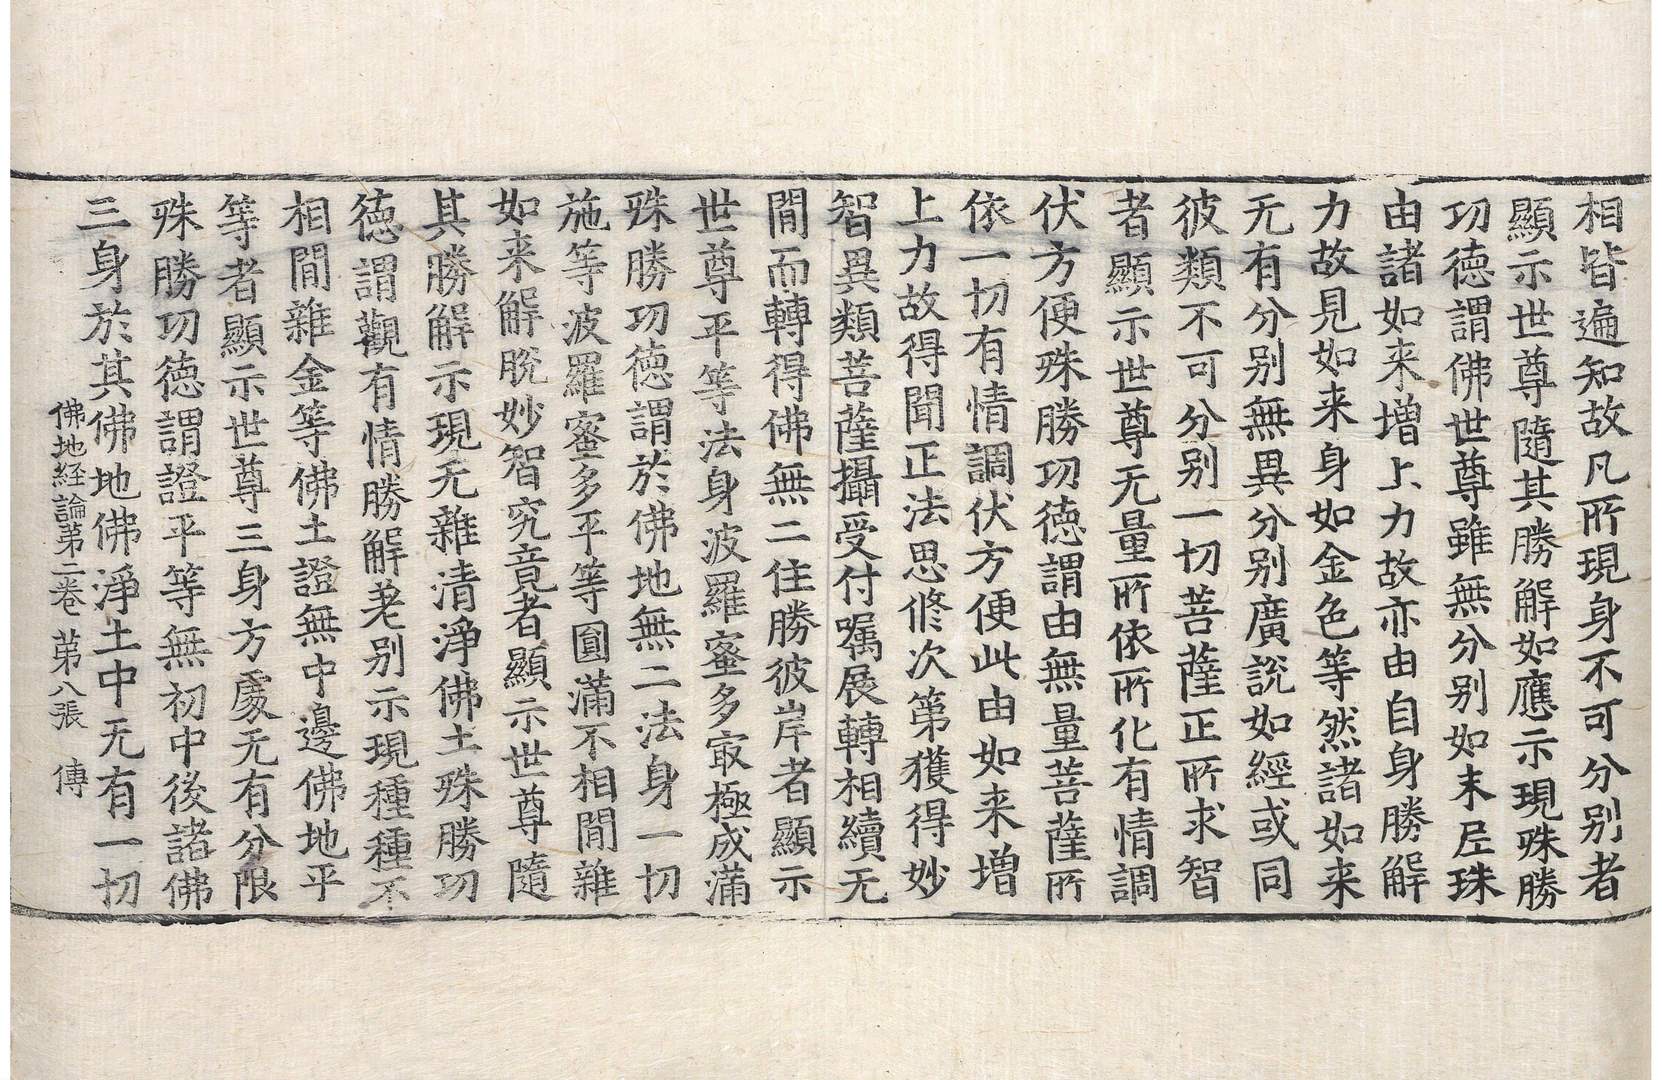 相皆遍知故凡所現身不可分別者
顯示世尊隨其勝解如應示現殊勝
功德謂佛世尊雖無分別如末尼珠
由諸如来增上力故亦由自身勝解
力故見如来身如金色等然諸如来
无有分別無異分別廣說如經或同
彼類不可分別一切菩薩正所求智
者顯示世尊无量所依所化有情調
伏方便殊勝功德謂由無量菩薩所
依一切有情調伏方便此由如来增
上力故得聞正法思修次第獲得妙
智異類菩薩攝受付嘱展轉相續无
間而轉得佛無二住勝彼岸者顯示
世尊平等法身波羅蜜多㝡極成滿
殊勝功德謂於佛地無二法身一切
施等波羅蜜多平等圓滿不相間雜
如来解脫妙智究竟者顯示世尊隨
其勝解示現无雜清淨佛土殊勝功
德謂觀有情勝解差別示現種種不
相間雜金等佛土證無中邊佛地平
等者顯示世尊三身方處无有分限
殊勝功德謂證平等無初中後諸佛
三身於其佛地佛淨土中无有一切
佛地経論第二卷 第八張 傳